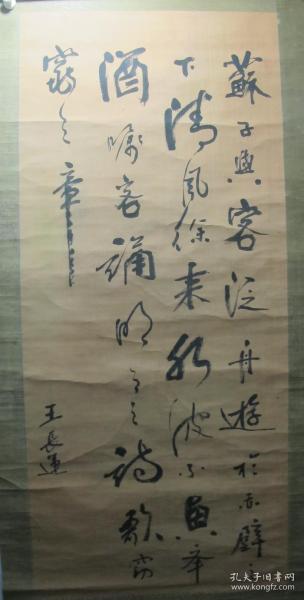 蘇子與客泛舟遊於赤壁之
下清風徐来水波不興举
酒嘱客誦明月之诗歌窈
窕之章
王長運
孔夫子旧书网